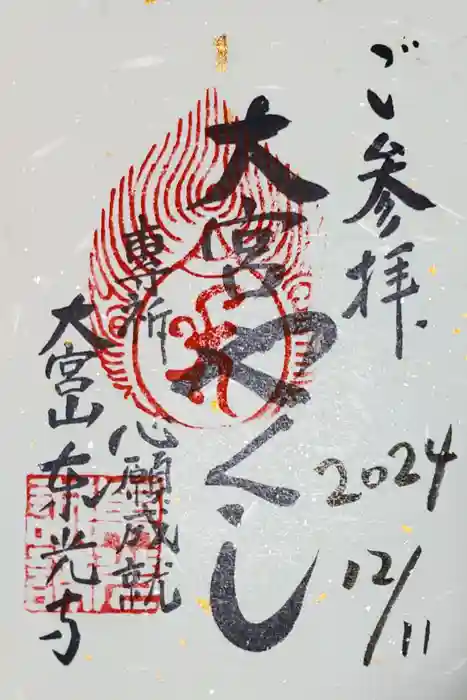 ご参拝
2024
12/11
大宮やくし
専祈
心願成就
大宮山東光寺